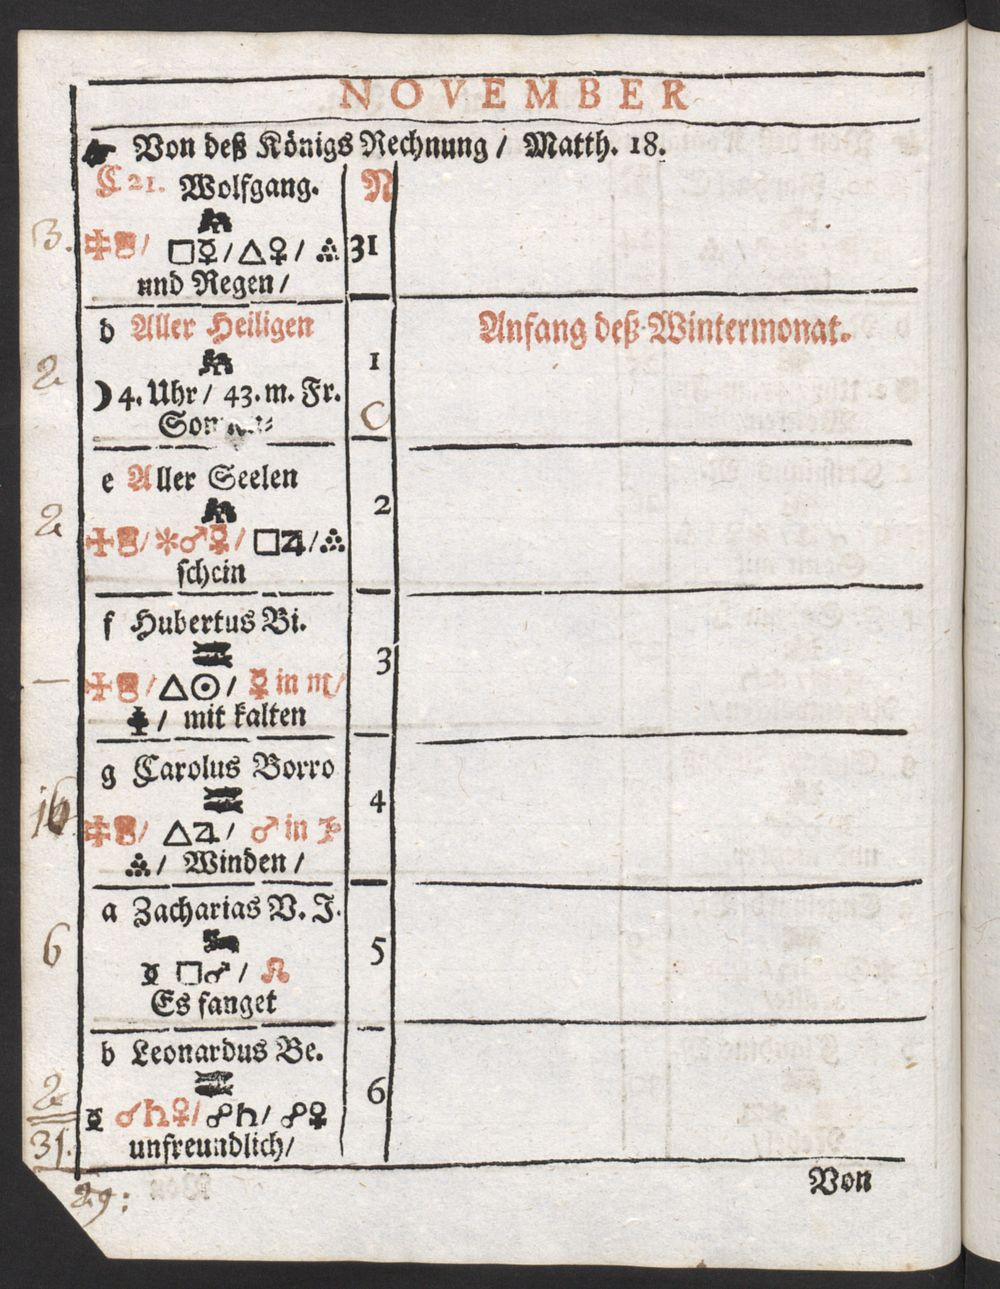 NOVEMBER
Von deß Königs Rechnung / Matth. 18.
C 21. Wolfgang. N
3. □☿ / △♀ / 31
und Regen /
d Aller Heiligen Anfang deß Wintermonat.
2 1
☽ 4. Uhr / 43. m. Fr.
C
e Aller Seelen
2 2
/ ✱♂☿ / □♃ /
schein
f Hubertus Bi.
3
— / △☉ / ☿ in ♏ /
/ mit kalten
g Carolus Borro
4
16 / △♃ / ♂ in ♑
/ Winden /
a Zacharias V. J.
6 5
□♂ / ☊
Es fanget
b Leonardus Be.
2 6
♂♄♀ / ☍♄ / ☍♀
31. unfreundlich /
29: Von